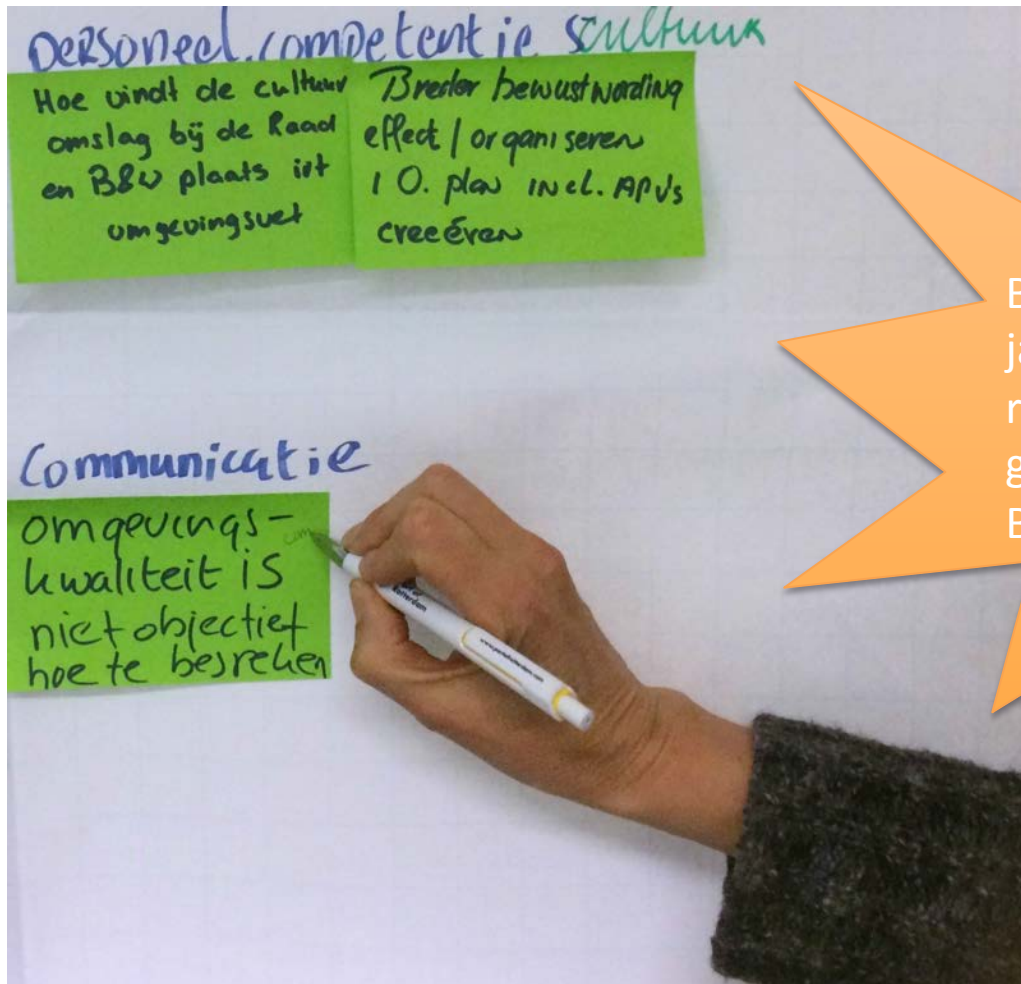 personeel, competentie s cultuur
Hoe vindt de cultuur
omslag bij de Raad
en B&W plaats irt
omgevingswet
Breder bewustwording
effect / organiseren
1 O. plan incl. APV's
creeéren
Communicatie
omgevings-
kwaliteit is
niet objectief
hoe te besreken
Rotterdam
www.portofrotterdam.com